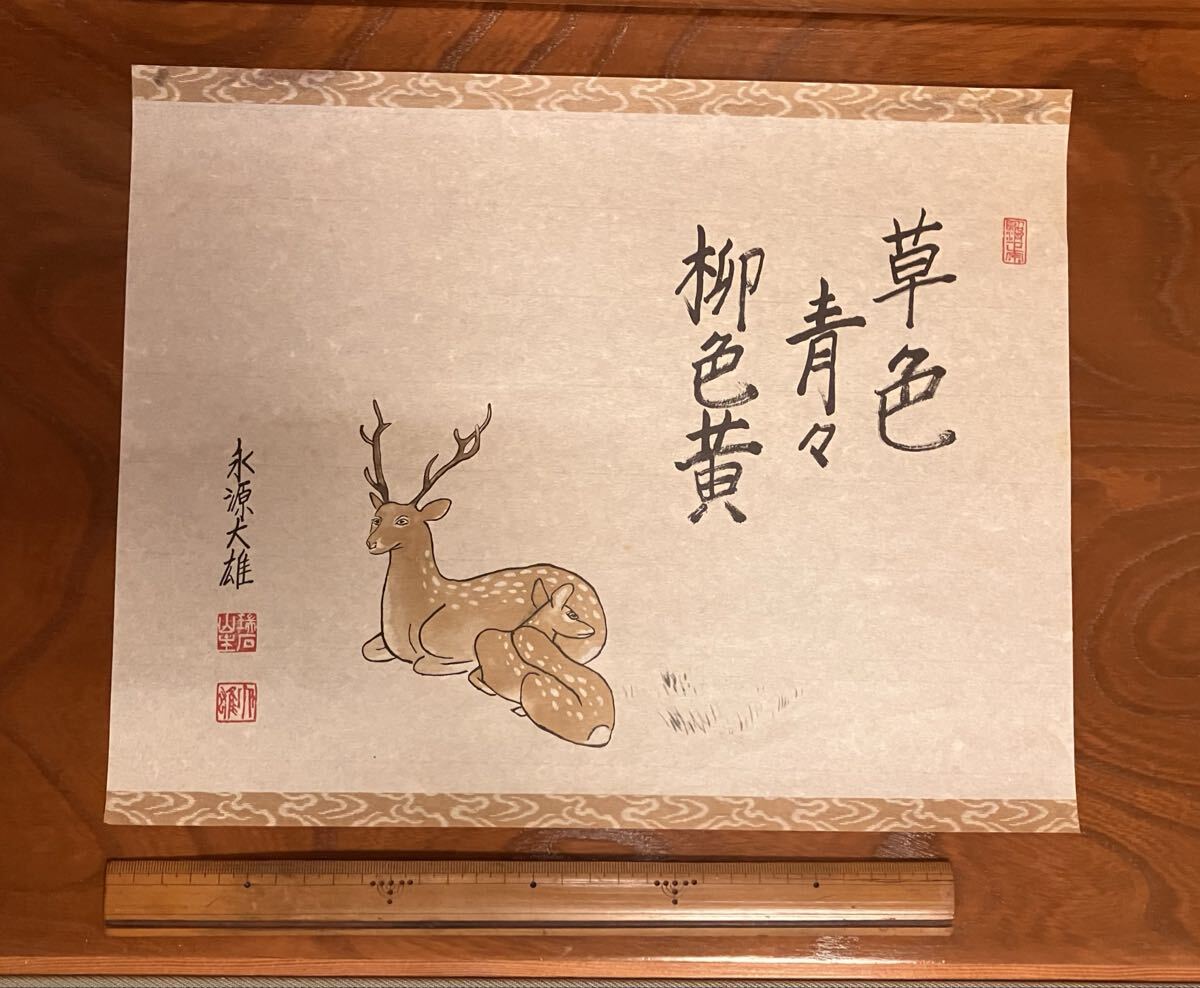 草色
青々
柳色黄
永源大雄